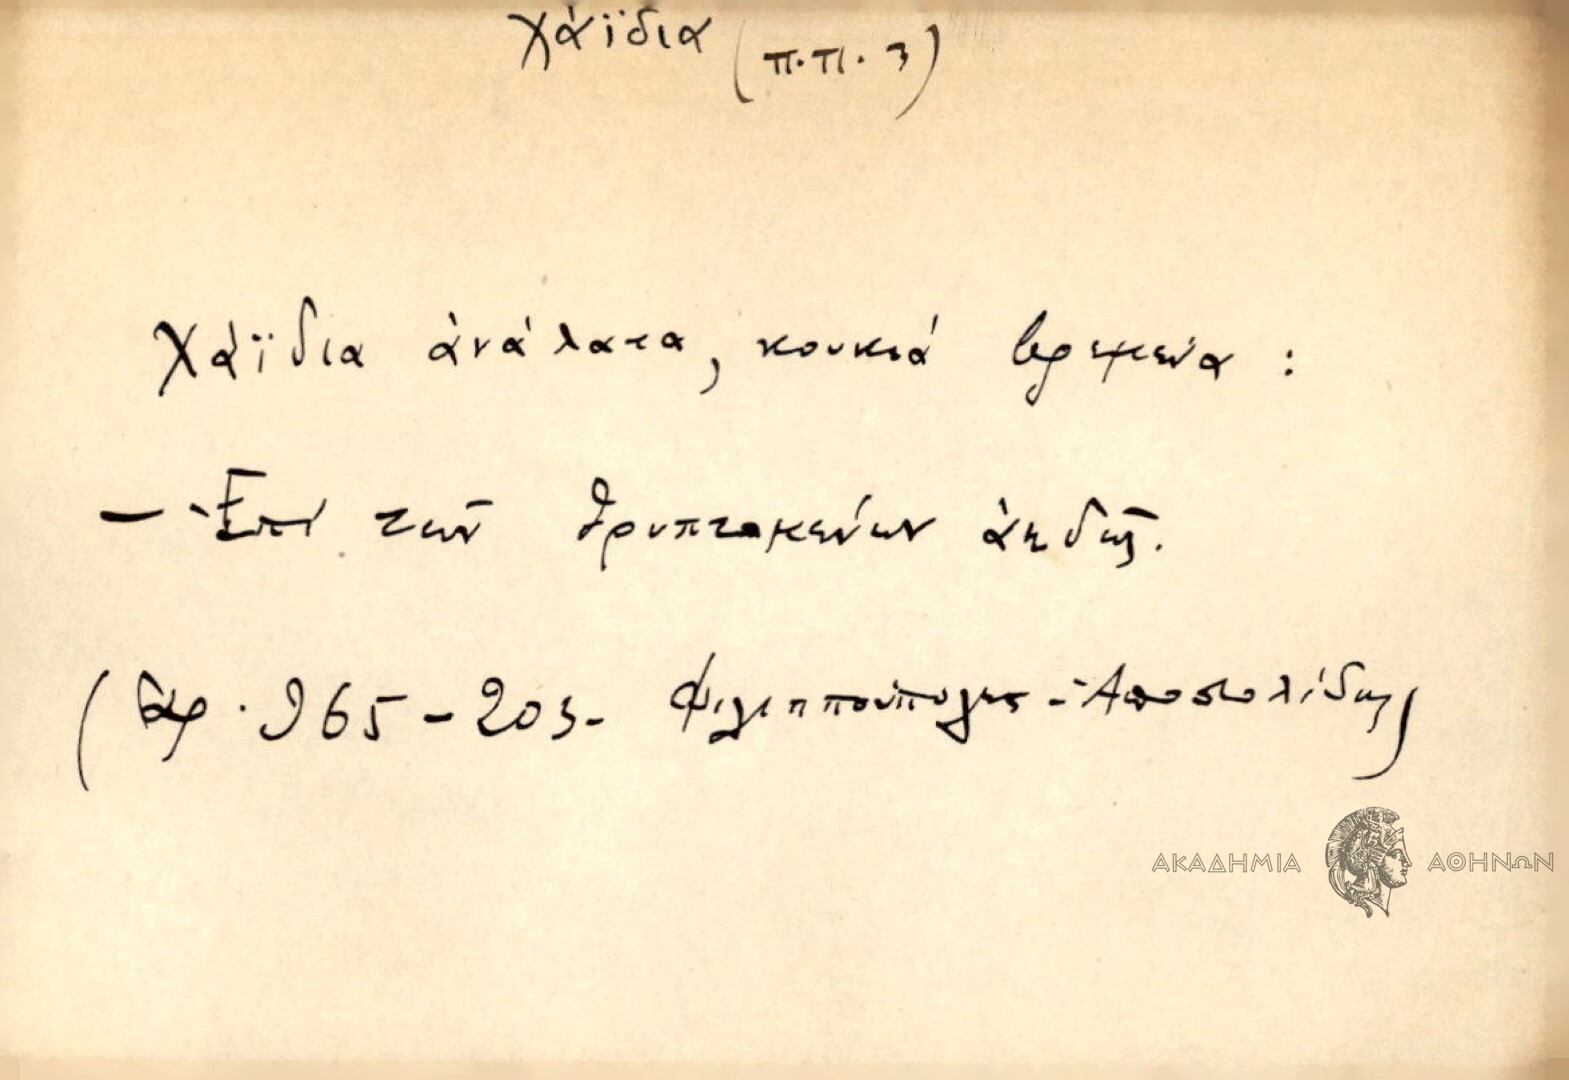 χάϊδια (π.π. 3)
Χάϊδια ἀνάλατα, κουκιά βρεμένα :
— Ἐπί τῶν θρυπτομένων ἀηδῶς.
(ἀρ. 965 - 203 - Φιλιππούπολις - Ἀποστολίδης)
ΑΚΑΔΗΜΙΑ ΑΘΗΝΩΝ